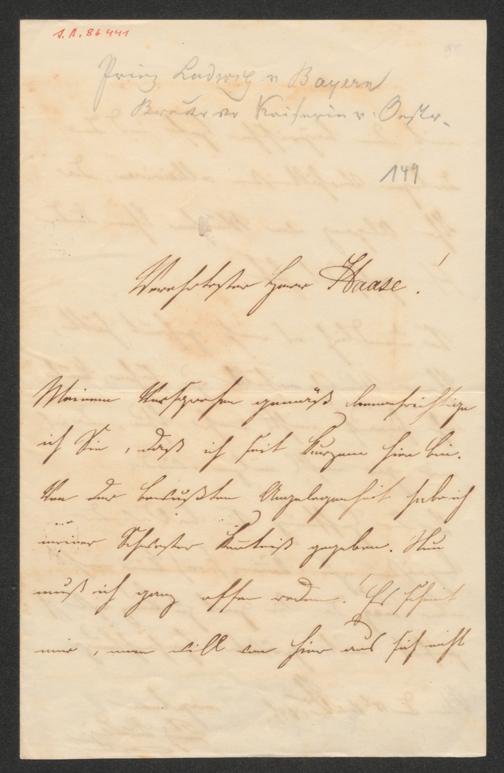 J.A. 86441
Prinz Ludwig v Bayern
Bruder der Kaiserin v. Oestr.
149
Verehrtester Herr Haase!
Meinem Versprechen gemäß benachrichtige
ich Sie, daß ich seit Kurzem hier bin.
Von der bewußten Angelegenheit habe ich
meiner Schwester Kentniß gegeben. Nun
muß ich ganz offen reden. Es scheint
mir, man will von hier aus sich nicht